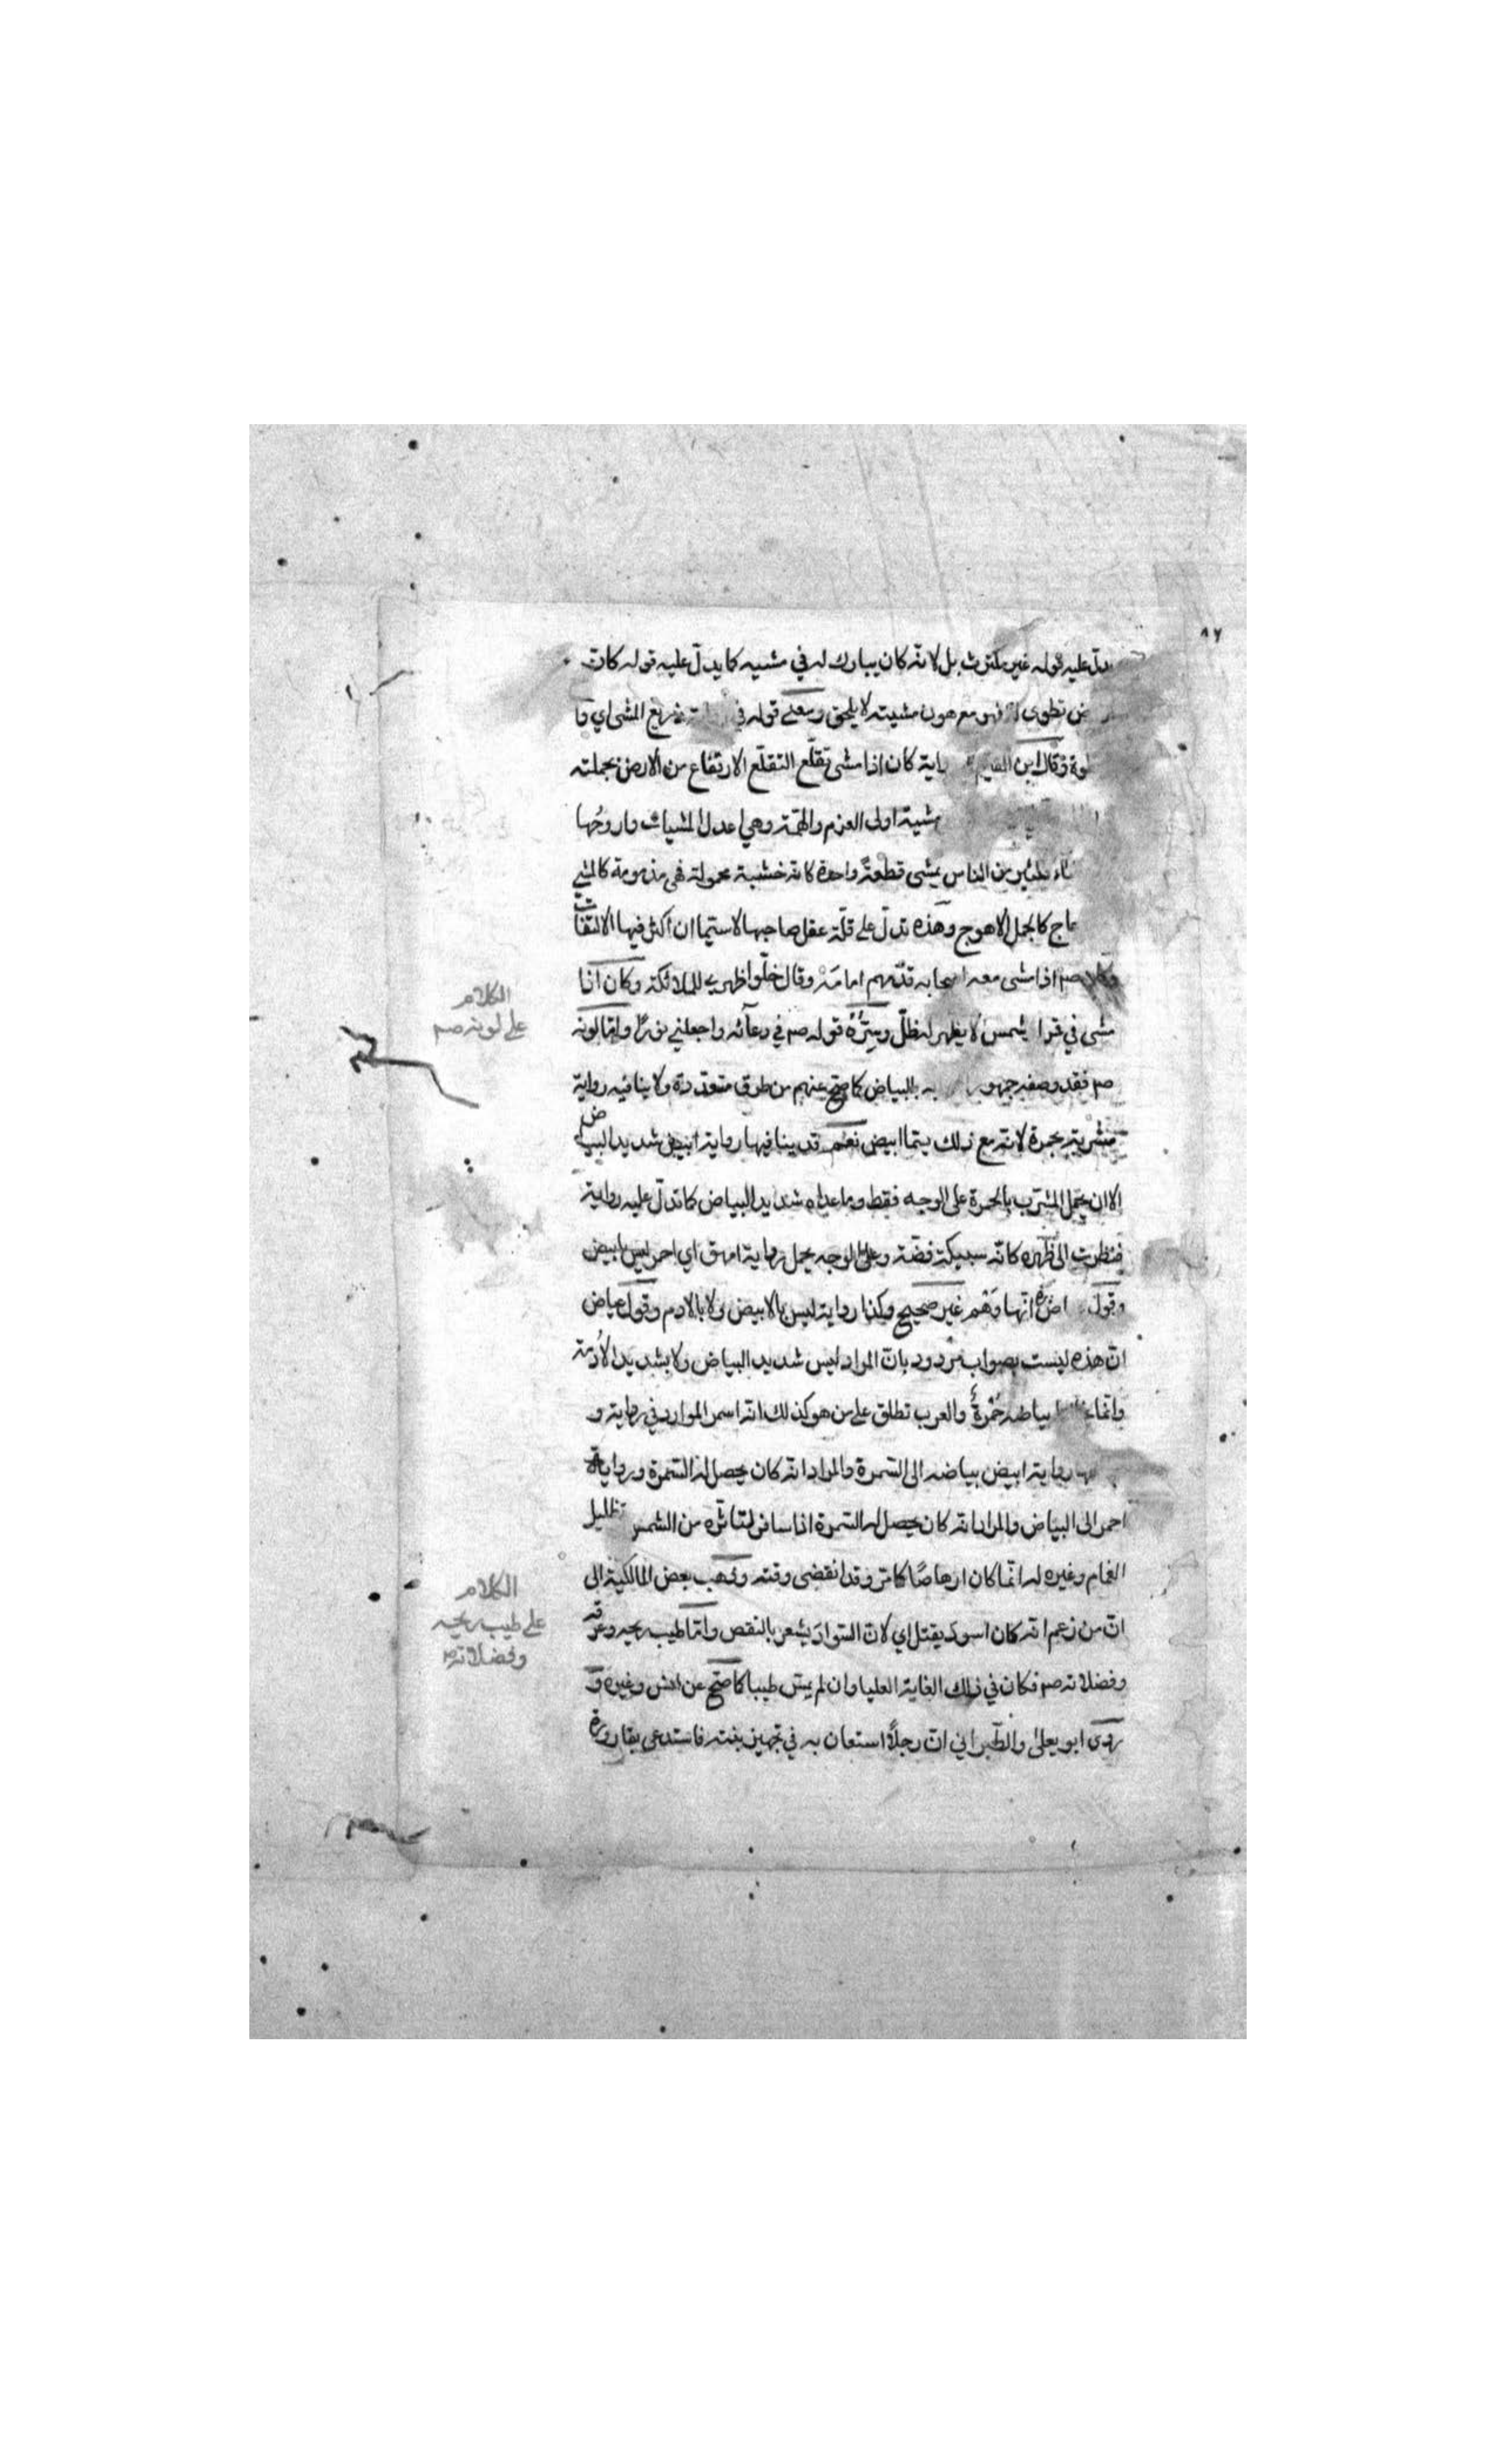 ٨٧
يدلّ عليه قوله غير مكترث بل لانّه كان يبارك له في مشيه كما يدلّ عليه قوله كانت
تطوى له فهو مع هون مشيته لا يلحق ومعنى قوله في ذريع المشي اي وا
وقال ابن القيم كان اذا مشى تقلّع التقلّع الارتفاع من الارض بجملته
مشية اولى العزم والهمّة وهي اعدل المشيات واروحُها
من الناس يمشى قطعةً واحدة كانّه خشبة محمولة فهي مذمومة كالمشي
كالجمل الاهوج وهذه تدلّ على قلّة عقل صاحبها لا سيّما ان اكثر فيها الالتفات
وكان صم اذا مشى معه اصحابه قدّمهم امامَهْ وقال خلّوا ظهري للملائكة وكان اذا
مشى في قمر او شمس لا يظهر له ظلّ وسِرُّهُ قوله صم في دعائه واجعلني نورًا وامّا لونه
صم فقد وصفه جمهور به بالبياض كما صحّ عنهم من طرق متعدّدة ولا ينافيه رواية
مشربة بحمرة لانّه مع ذلك يسمّا ابيض نعم قد ينافيها رواية ابيض شديد البياض
الا ان يحمل المشرّب بالحمرة على الوجه فقط وما عداه شديد البياض كما تدلّ عليه رواية
فنظرت الى ظهره كانّه سبيكة فضّة وعلى الوجه يحمل رواية امهق اي احمر ليس بابيض
وقول انّها وَهْم غير صحيح وكذا رواية ليس بالابيض ولا بالادم وقول عياض
انّ هذه ليست بصواب مردود بانّ المراد ليس شديد البياض ولا بشديد الأدمة
وانّما بياضه حُمْرةٌ والعرب تطلق على من هو كذلك انّه اسمر الموارد في رواية و
رواية ابيض بياضه الى السّمرة والمراد انّه كان يحصل له السّمرة ورواية
احمر الى البياض والمراد انّه كان يحصل له السّمرة اذا سافر لتاثّره من الشمس تظليل
الغمام وغيره له انّما كان ارهاصًا كما مرّ وقد انقضى وقته وذهب بعض المالكيّة الى
انّ من زعم انّه كان اسود يقتل اي لانّ السّوادَ يشعر بالنقص وامّا طيب ريحه وعرقه
وفضلاته صم فكان في ذلك الغاية العليا وان لم يمسّ طيبا كما صحّ عن انس وغيره و
روى ابو يعلى والطّبراني انّ رجلًا استعان به في تجهيز بنته فاستدعى بقارورة
الكلام
على لونه صم
الكلام
على طيب ريحه
وفضلاته صم